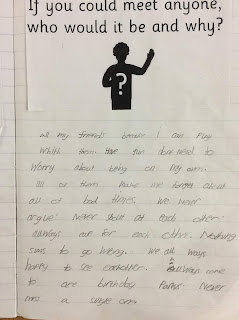 If you could meet anyone,
who would it be and why?
?
all my friends because I can play
whith them have fun dont need to
worry about being on my own.
all of them have me forget about
all of bad times. We never
argue never shout at each other
allways are for each other. Nothing
sure to go wrong. We all ways
happy to see eachother. all ways come
to are birthday Partys Never
mis a single one.